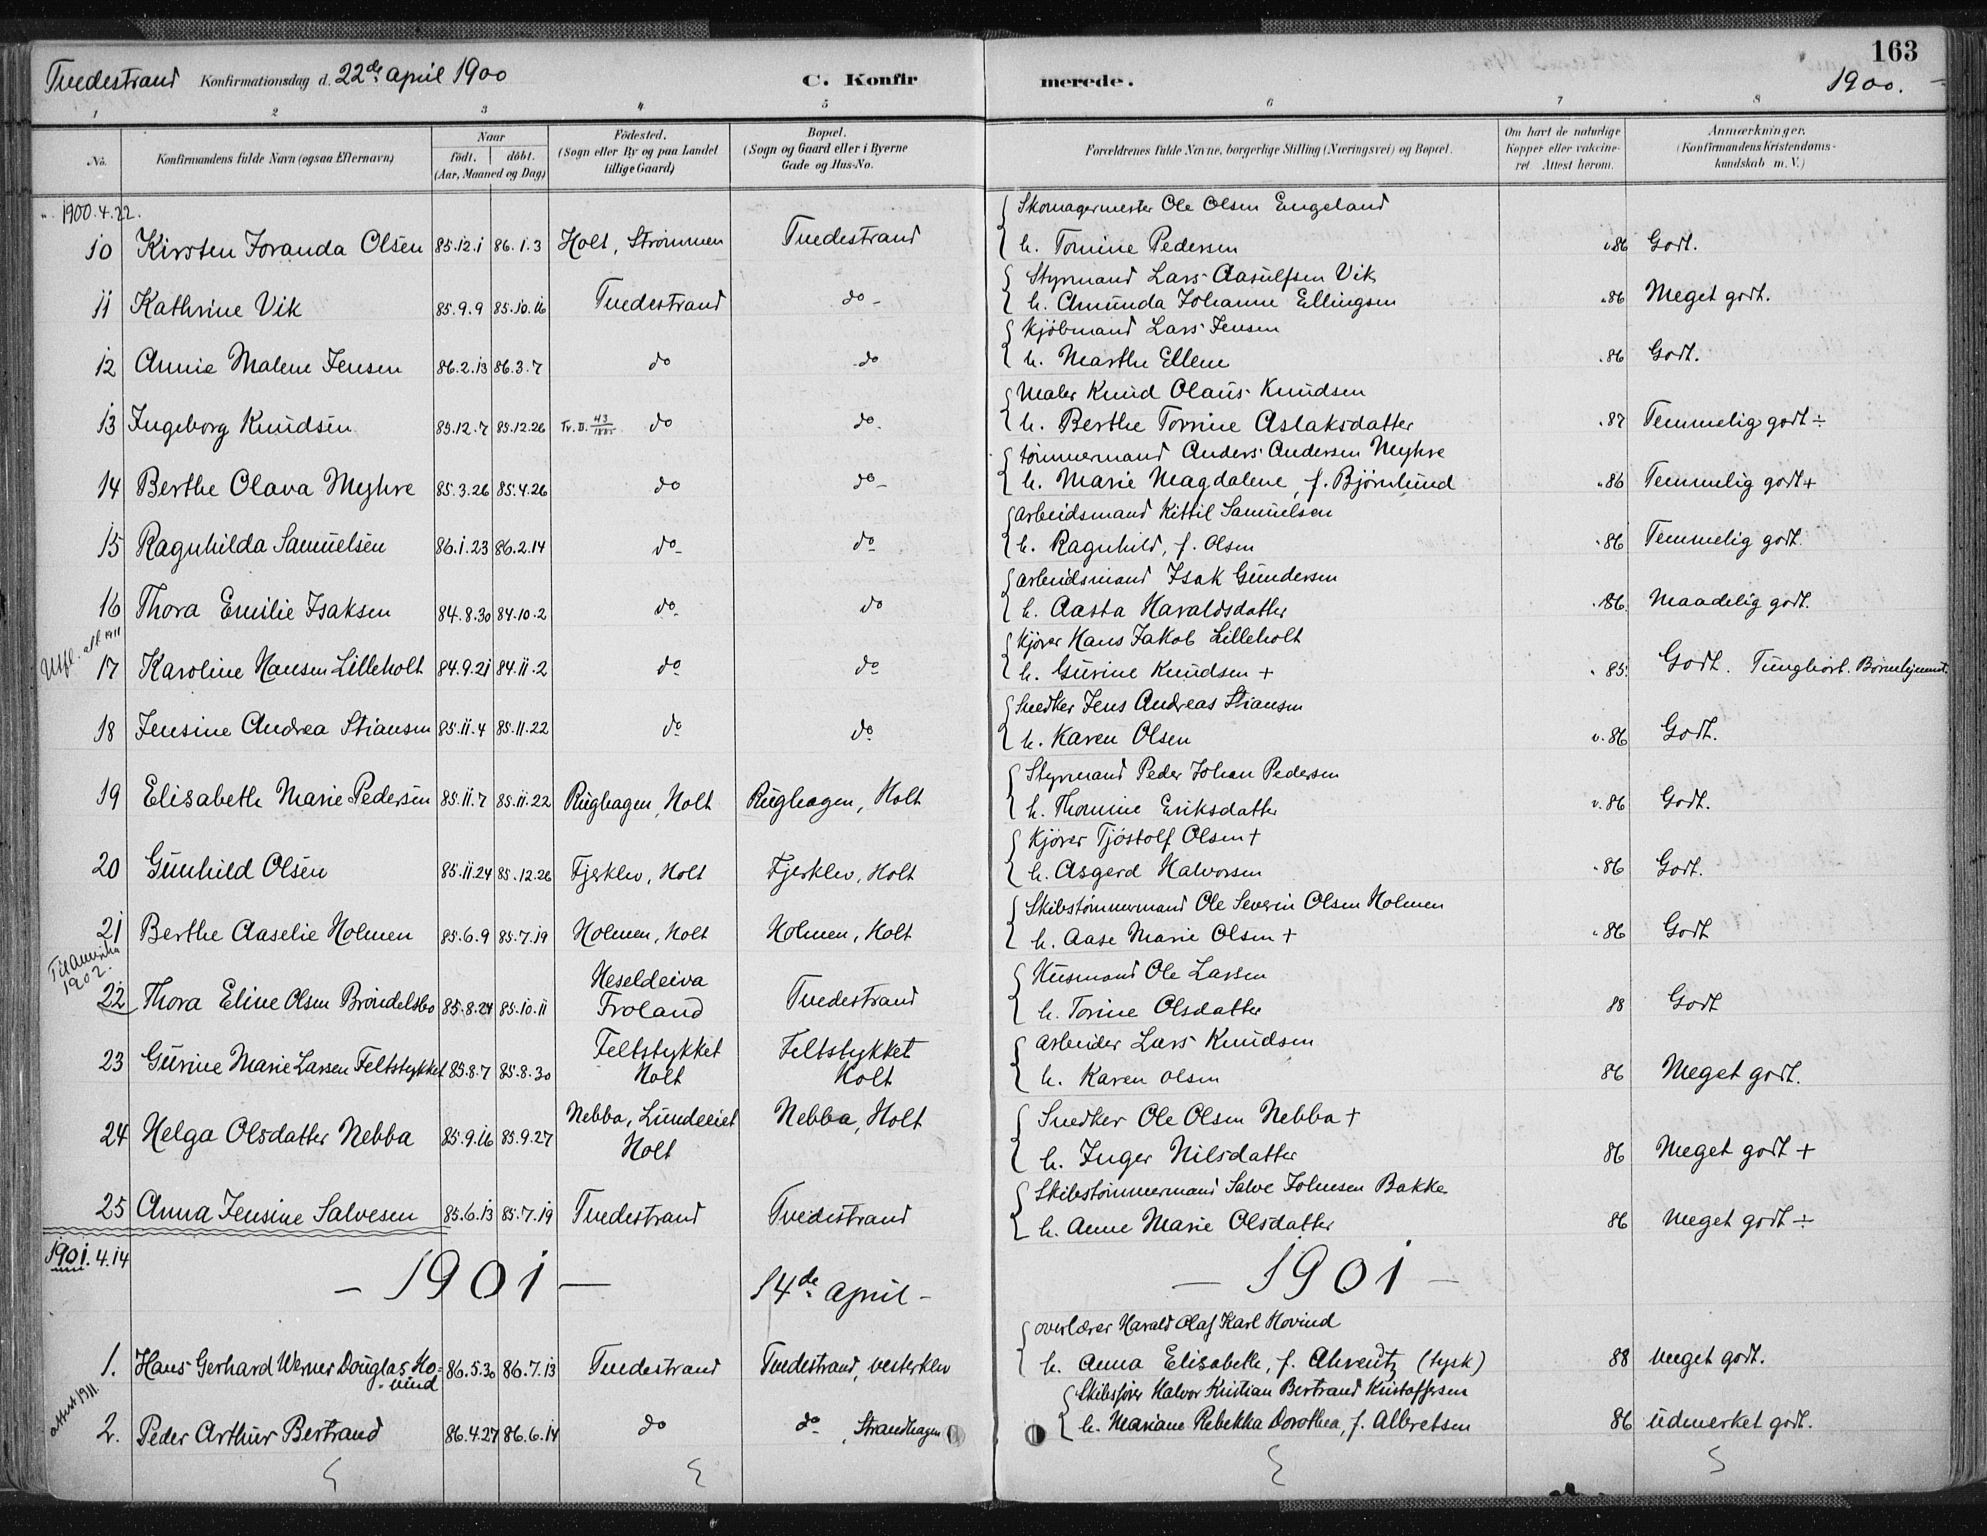 163
Tvedestrand Konfirmationsdag d. 22de April 1900 C. Konfirmerede. 1900.
1 2 3 4 5 6 7 8
No. Konfirmandens fulde Navn (ogsaa Efternavn) Naar født. døbt. (Aar, Maaned og Dag) Födested. (Sogn eller By og paa Landet tillige Gaard) Bopæl. (Sogn og Gaard eller i Byerne Gade og Hus-No. Forældrenes fulde Navne, borgerlige Stilling (Næringsvei) og Bopæl. Om havt de naturlige Kopper eller vakcineret Attest herom. Anmærkninger. (Konfirmandens Kristendomskundskab m. V.)
1900.4.22.
Skomagermester Ole Olsen Engeland
10 Kirsten Joranda Olsen 85.12.1 86.1.3 Holt, Strømmen Tvedestrand h. Tomine Pedersen v86 Godt.
Styrmand Lars Aasulfsen Vik
11 Kathrine Vik 85.9.9 85.10.16 Tvedestrand do h. Amunda Johanne Ellingsen 86 Meget godt.
Kjøbmand Lars Jensen
12 Annie Malene Jensen 86.2.13 86.3.7 do do h. Marthe Ellene 86 Godt.
Maler Knud Olaus Knudsen
13 Ingeborg Knudsen 85.12.7 85.12.26 do do h. Berthe Tomine Aslaksdatter 87 Temmelig godt ÷
Tømmermand Anders Andersen Myhre
14 Berthe Olava Myhre 85.3.26 85.4.26 do do h. Marie Magdalene, f. Bjørnlund 86 Temmelig godt +
Arbeidsmand Kittil Samuelsen
15 Ragnhilda Samuelsen 86.1.23 86.2.14 do do h. Ragnhild, f. Olsen 86 Temmelig godt.
Arbeidsmand Isak Gundersen
16 Thora Emilie Isaksen 84.8.30 84.10.2 do do h. Aasta Haraldsdatter 86. Maadelig godt.
Utfl. att 1911
Kjører Hans Jakob Lilleholt
17 Karoline Hansen Lilleholt 84.9.21 84.11.2 do do h. Gurine Knudsen + 85. Godt. Tunghørt. Børnehjemmet.
Snedker Jens Andreas Stiansen
18 Jensine Andrea Stiansen 85.11.4 85.11.22 do do h. Karen Olsen v.86 Godt.
Styrmand Peder Johan Pedersen
19 Elisabeth Marie Pedersen 85.11.7 85.11.22 Rughagen, Holt Rughagen, Holt h. Thomine Eriksdatter v.86 Godt.
Kjører Tjøstolf Olsen +
20 Gunhild Olsen 85.11.24 85.12.26 Fjerklev, Holt Fjerklev, Holt h. Asgerd Halvorsen 86 Godt.
Skibstømmermand Ole Severin Olsen Holmen
21 Berthe Aaselie Holmen 85.6.9 85.7.19 Holmen, Holt Holmen, Holt h. Aase Marie Olsen + 86 Godt
Til Amerika 1902.
Husmand Ole Larsen
22 Thora Eline Olsen Brøndelsbo 85.8.24 85.10.11 Heseldeiva Froland Tvedestrand h. Torine Olsdatter 88 Godt
Arbeider Lars Knudsen
23 Gurine Marie Larsen Feltstykket 85.8.7 85.8.30 Feltstykket Holt Feltstykket Holt h. Karen Olsen 86 Meget godt.
Snedker Ole Olsen Nebba +
24 Helga Olsdatter Nebba 85.9.16 85.9.27 Nebba, Lundeeiet Holt Nebba, Holt h. Inger Nilsdatter 86 Meget godt +
Skibstømmermand Salve Johnsen Bakke
25 Anna Jensine Salvesen 85.6.13 85.7.19 Tvedestrand Tvedestrand h. Anne Marie Olsdatter 86 Meget godt ÷
1901.4.14
– 1901 – 14de April – – 1901 –
Overlærer Harald Olaf Karl Hovind
1. Hans Gerhard Werner Douglas Hovind 86.5.30 86.7.13 Tvedestrand Tvedestrand, Vesterklev h. Anna Elisabeth, f. Ahrentz (tysk) 88 Meget godt.
attest 1911.
Skibsfører Halvor Kristian Bertrand Kristoffersen
2. Peder Arthur Bertrand 86.4.27 86.6.14 do do, Strandhagen h. Mariane Rebekka Dorothea, f. Albretsen 86 Udmerket godt.